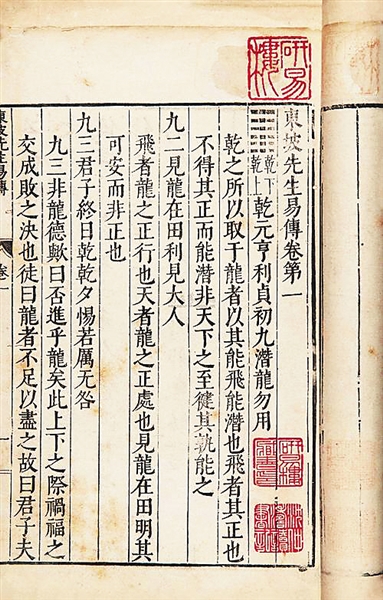 研易樓
東坡先生易傳卷第一
乾下
乾上
乾元亨利貞初九潛龍勿用
乾之所以取于龍者以其能飛能潛也飛者其正也
不得其正而能潛非天下之至徤其孰能之
九二見龍在田利見大人
飛者龍之正行也天者龍之正處也見龍在田明其
可安而非正也
九三君子終日乾乾夕惕若厲无咎
九三非龍德歟曰否進乎龍矣此上下之際禍福之
交成敗之決也徒曰龍者不足以盡之故曰君子夫
東坡先生易傳
卷一
一